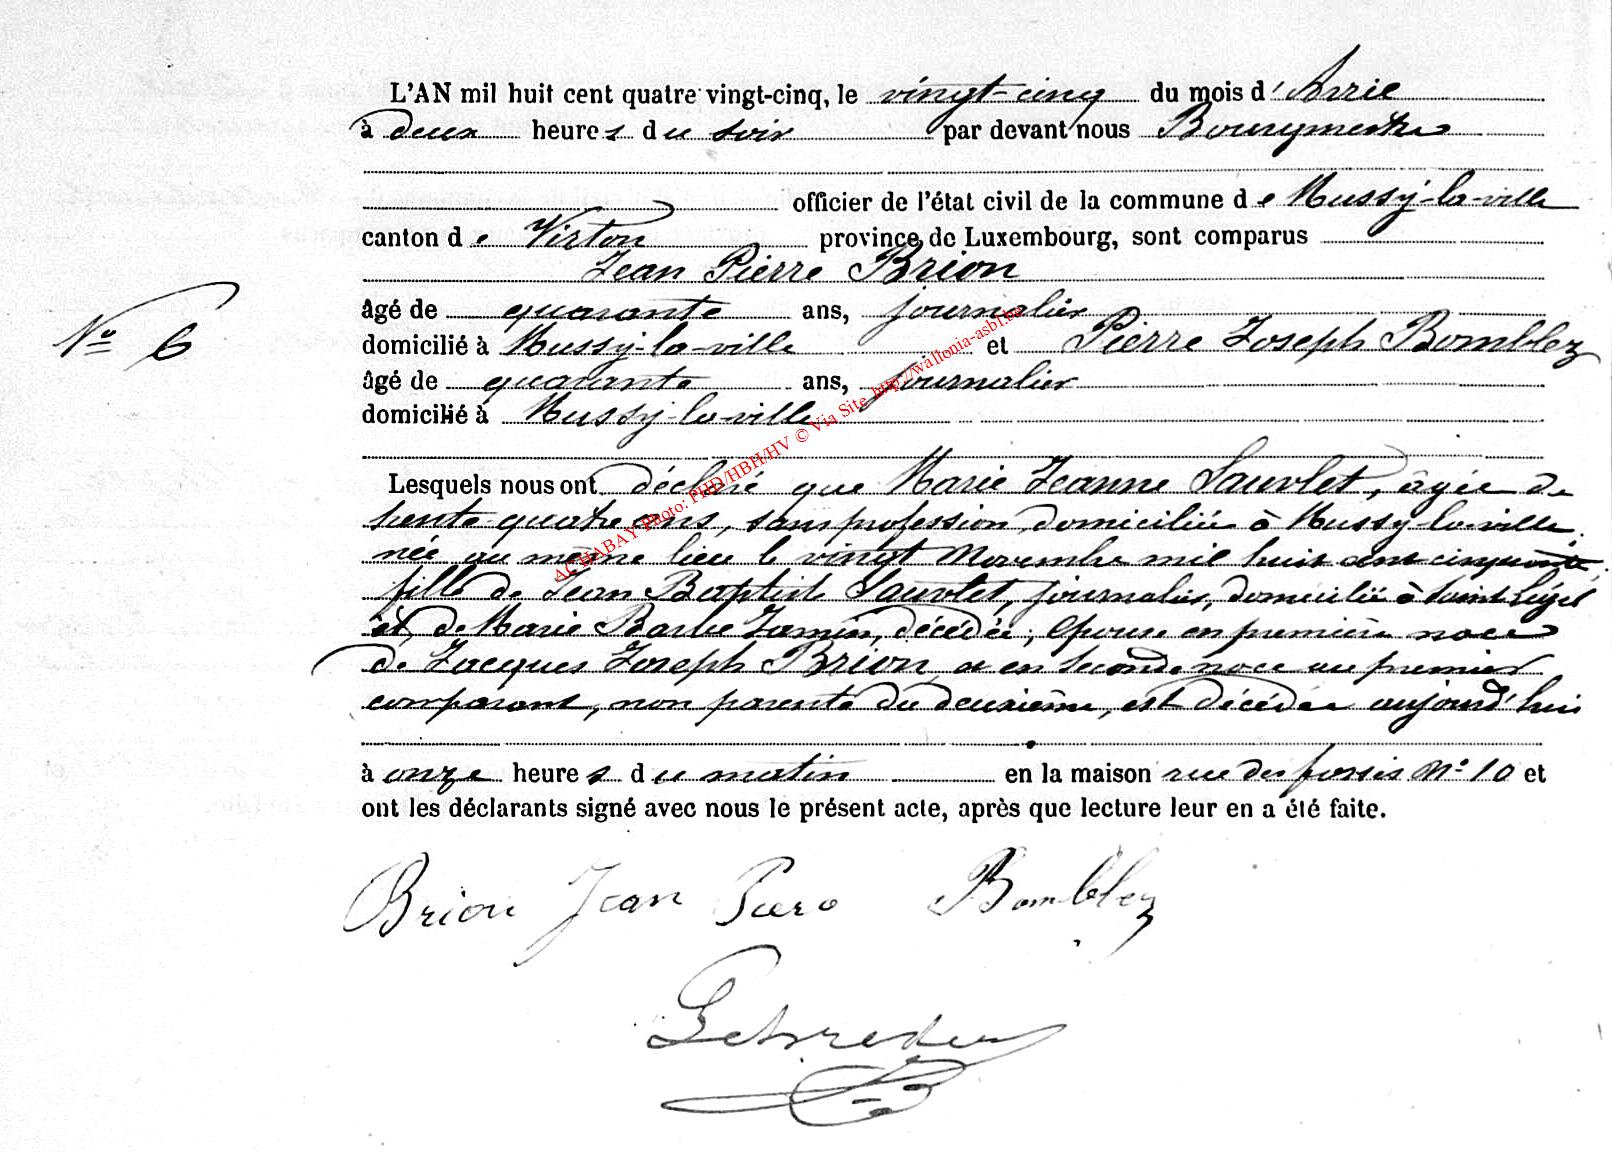 L'AN mil huit cent quatre vingt-cinq, le vingt-cinq du mois d'Avril
à deux heures du soir par devant nous Bourgmestre
officier de l'état civil de la commune de Mussy-la-ville
canton de Virton province de Luxembourg, sont comparus
Jean Pierre Brion
âgé de quarante ans, journalier
N° 6
domicilié à Mussy-la-ville et Pierre Joseph Bomblez
âgé de quarante ans, journalier
domicilié à Mussy-la-ville
Lesquels nous ont déclaré que Marie Jeanne Sauvlet, âgée de
trente quatre ans, sans profession, domiciliée à Mussy-la-ville,
née au même lieu le vingt Novembre mil huit cent cinquante,
fille de Jean Baptiste Sauvlet, journalier, domicilié à Saint Léger
et de Marie Barbe Jamin, décédée, épouse en première noce
de Jacques Joseph Brion et en seconde noce au premier
comparant, non parente du deuxième, est décédée aujourd'hui
à onze heures du matin en la maison rue des fossés N° 10 et
ont les déclarants signé avec nous le présent acte, après que lecture leur en a été faite.
Brion Jean Piere Bomblez
ACHABAY Photo: PHD/HBH/HV © Via Site http://wallonia-asbl.be